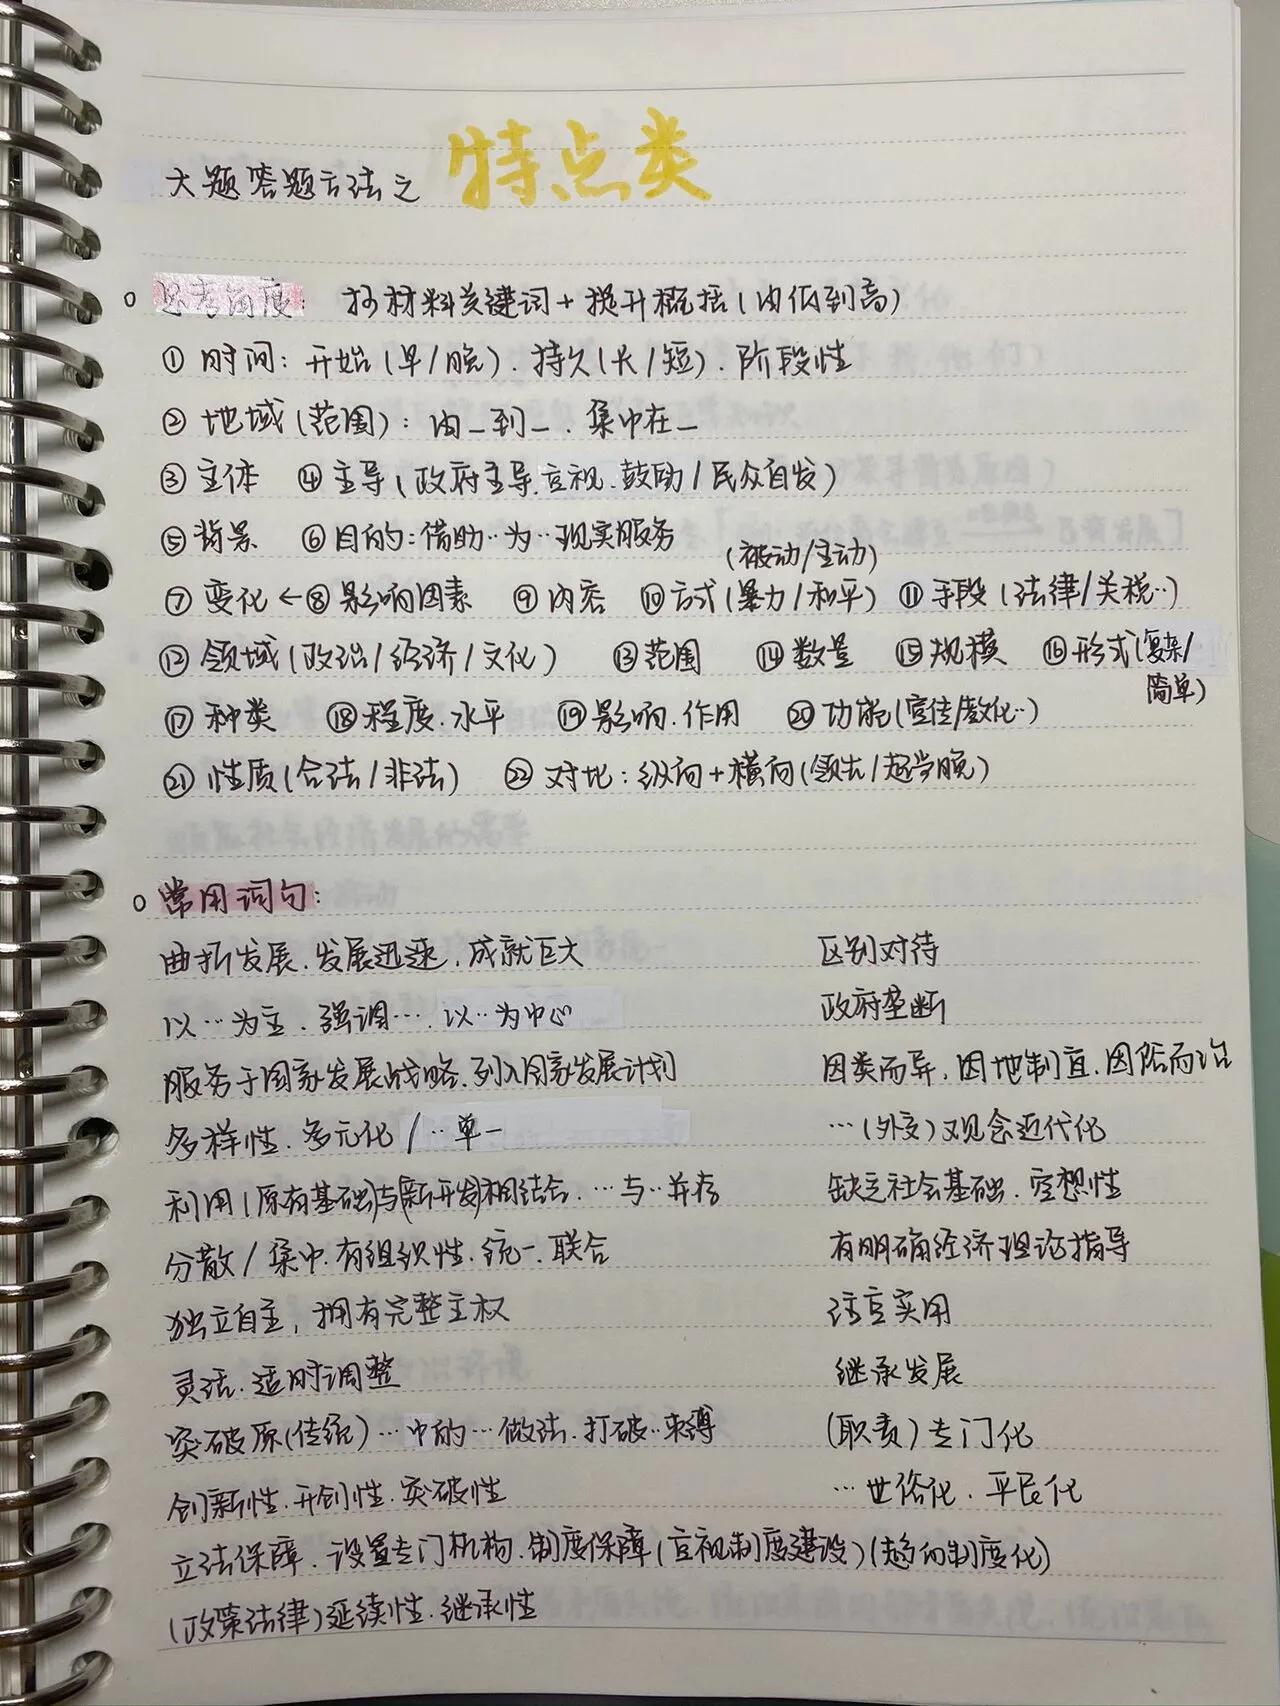 大题答题方法之 特点类
思考角度: 抄材料关键词+提升概括(由低到高)
① 时间: 开始(早/晚). 持久(长/短). 阶段性
② 地域(范围): 由_到_. 集中在_
③ 主体 ④ 主导(政府主导.重视.鼓励/民众自发)
⑤ 背景 ⑥ 目的:借助··为··现实服务
(被动/主动)
⑦ 变化←⑧影响因素 ⑨内容 ⑩方式(暴力/和平) ⑪手段(法律/关税··)
⑫ 领域(政治/经济/文化) ⑬范围 ⑭数量 ⑮规模 ⑯形式(复杂/
简单)
⑰ 种类 ⑱程度.水平 ⑲影响.作用 ⑳功能(宣传/教化··)
㉑ 性质(合法/非法) ㉒ 对比:纵向+横向(领先/起步晚)
常用词句:
曲折发展.发展迅速.成就巨大 区别对待
以…为主.强调….以··为中心 政府垄断
服务于国家发展战略.列入国家发展计划 因类而异.因地制宜.因俗而治
多样性.多元化/··单一 …(外交)观念近代化
利用(原有基础)与(新开发)相结合.…与··并存 缺乏社会基础.空想性
分散/集中.有组织性.统一.联合 有明确经济理论指导
独立自主,拥有完整主权 注重实用
灵活.适时调整 继承发展
突破原(传统)…中的…做法.打破··束缚 (职责)专门化
创新性.开创性.突破性 …世俗化.平民化
立法保障.设置专门机构.制度保障(重视制度建设)(趋向制度化)
(政策法律)延续性.继承性